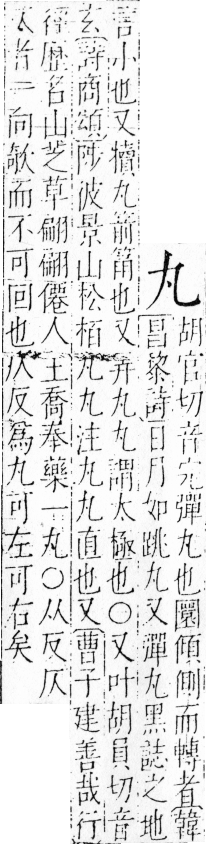 丸
胡官切音完彈丸也圜傾側而轉者韓
昌黎詩日月如跳丸又彈丸黑誌之地
言小也又犢丸箭筩也又弁丸丸謂太極也○又叶胡員切音
玄詩商頌陟彼景山松栢丸丸注丸丸直也又曹子建善哉行
徑歷名山芝草翩翩僊人王喬奉藥一丸○从反仄
仄者一向欹而不可回也仄反爲丸可左可右矣